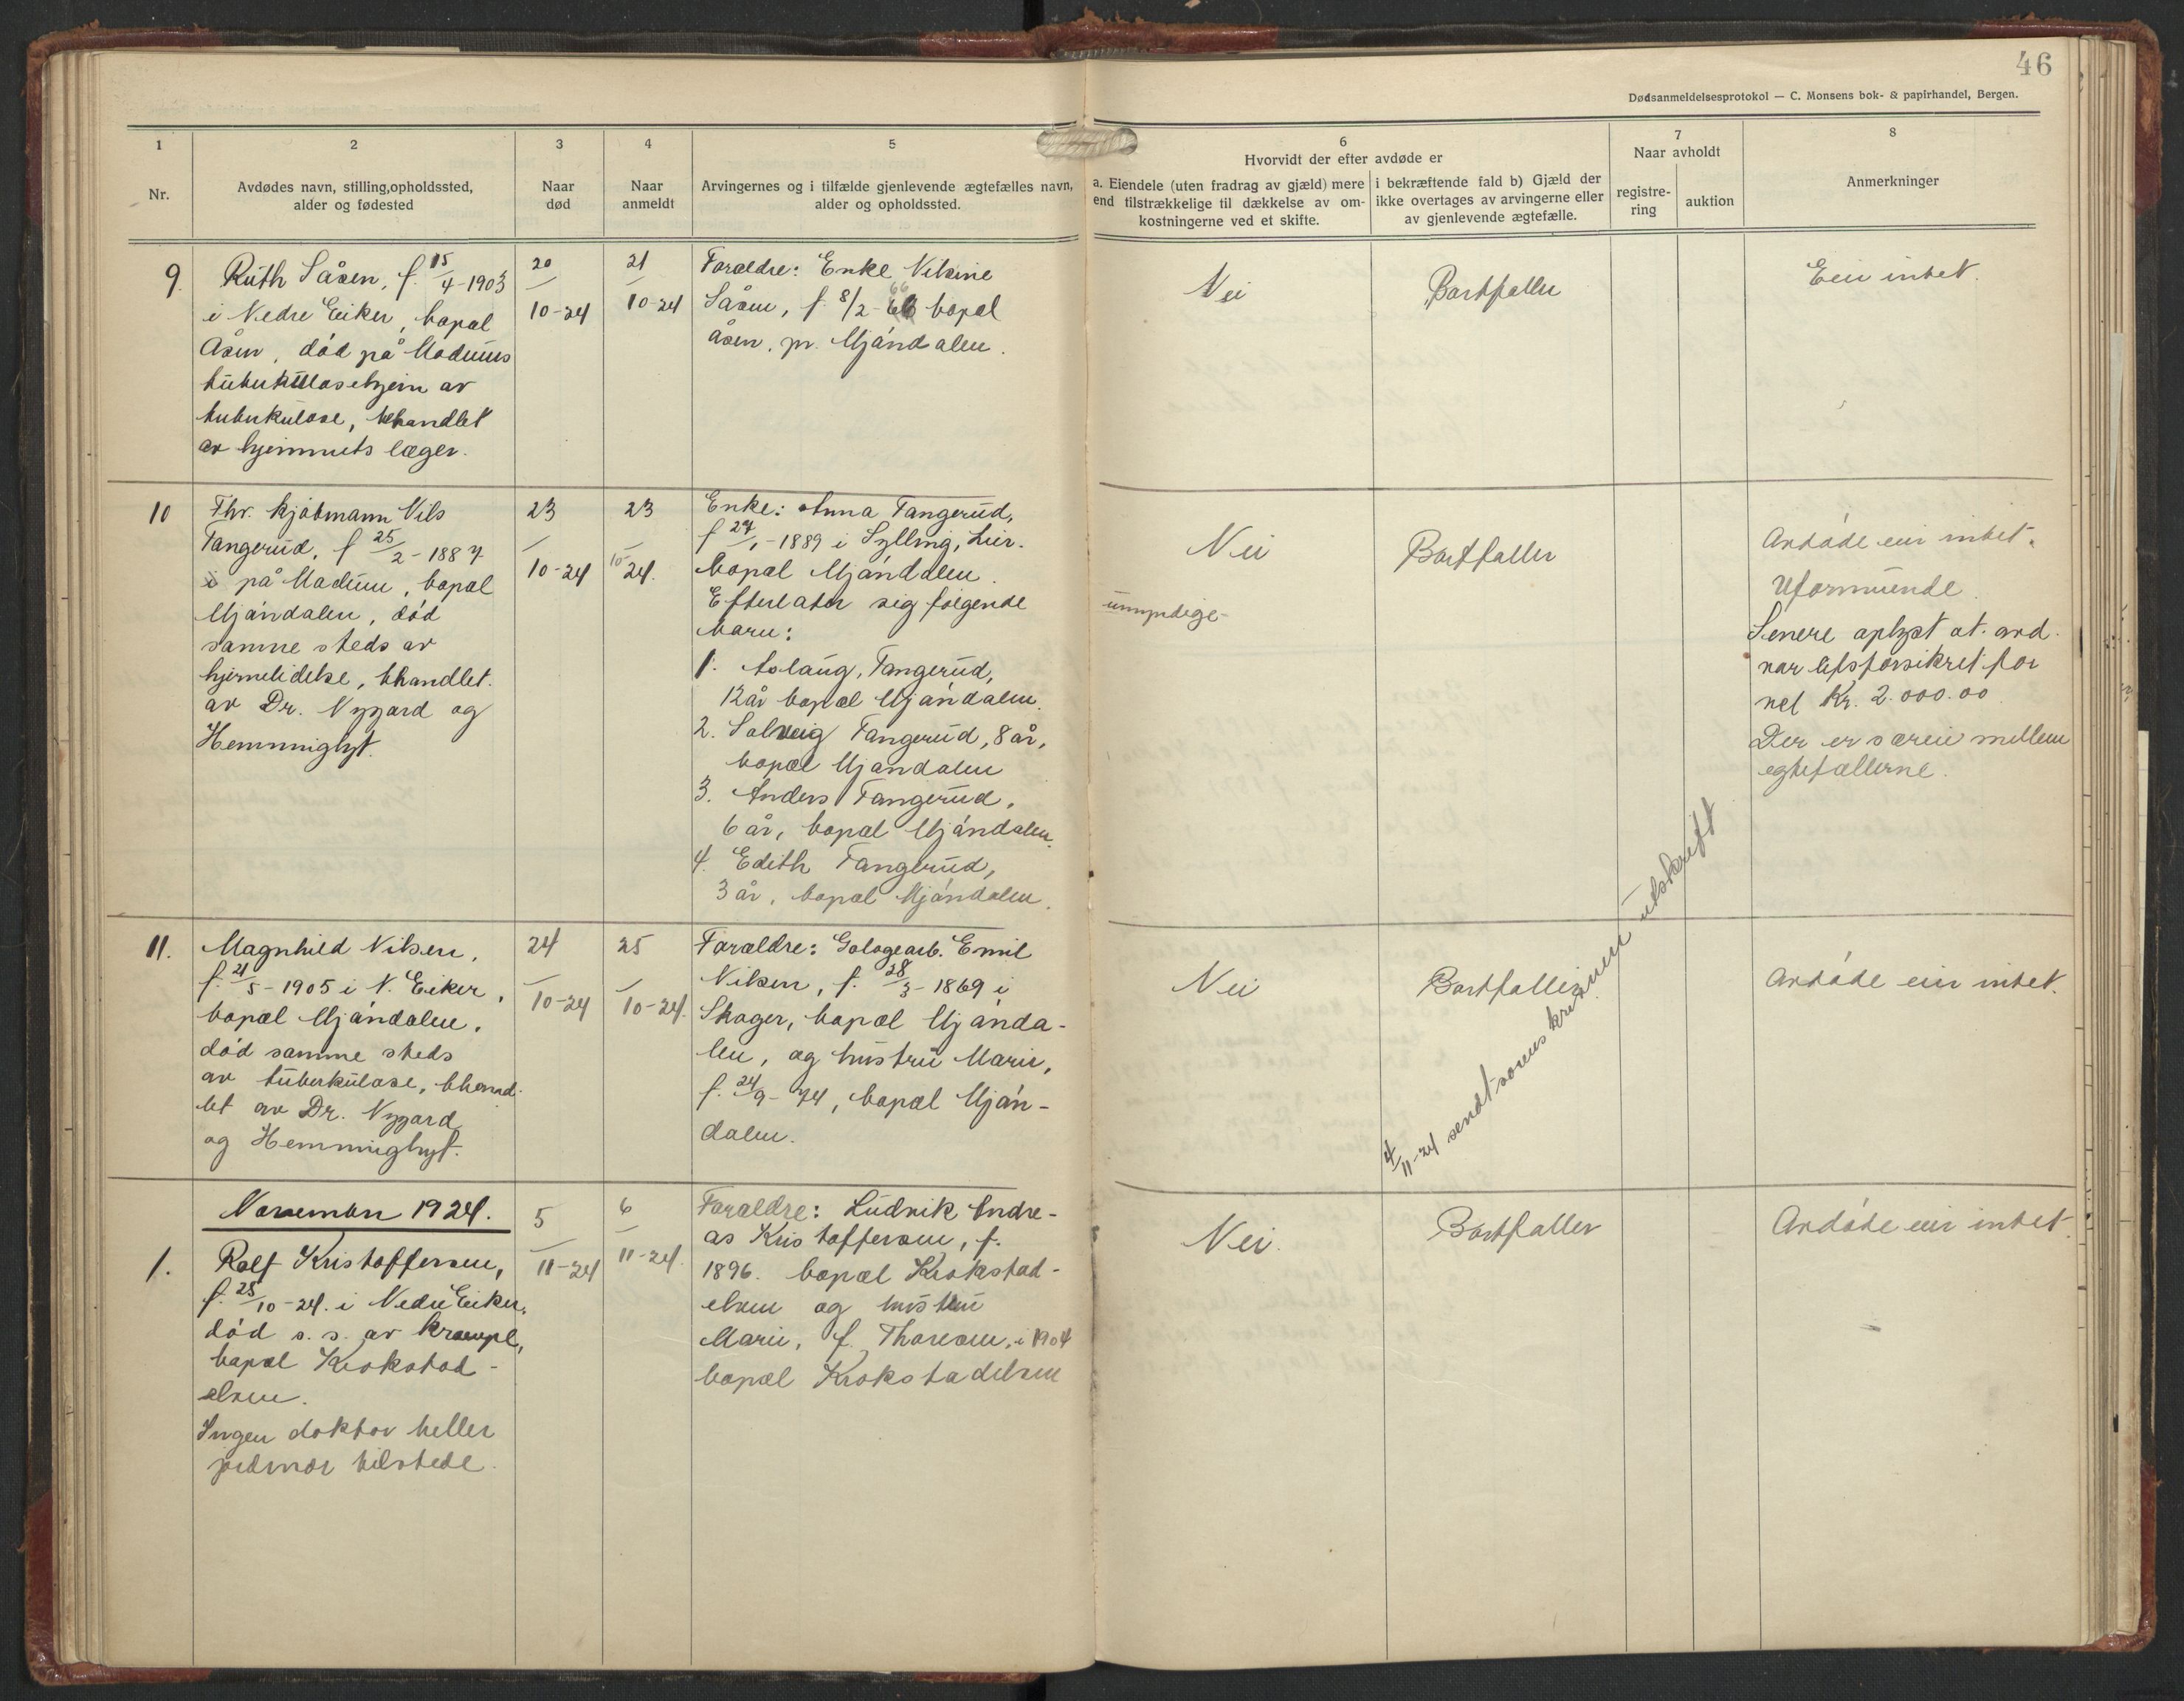 46
Dødsanmeldelsesprotokol — C. Monsens bok- & papirhandel, Bergen.
1
2
3
4
5
6
7
8
Nr.
Avdødes navn, stilling, opholdssted,
alder og fødested
Naar
død
Naar
anmeldt
Arvingernes og i tilfælde gjenlevende ægtefælles navn,
alder og opholdssted.
Hvorvidt der efter avdøde er
a. Eiendele (uten fradrag av gjæld) mere
end tilstrækkelige til dækkelse av om-
kostningerne ved et skifte.
i bekræftende fald b) Gjæld der
ikke overtages av arvingerne eller
av gjenlevende ægtefælle.
Naar avholdt
registre-
ring
auktion
Anmerkninger
9.
Ruth Såsen, f. 15/4-1903
i Nedre Eiker, bopæl
Åsen, død på Modums
tuberkulosehjem av
tuberkulose, behandlet
av hjemmets læger.
20/10-24
21/10-24
Forældre: Enke Nilsine
Såsen, f. 8/2-66 bopæl
åsen, pr. Mjøndalen.
Nei
Bortfaller
Eier intet.
10
Fhv. kjøbmann Nils
Tangerud, f 25/2-1887
på Modum, bopæl
Mjøndalen, død
samme steds av
hjernelidelse, bhandlet
av Dr. Nygard og
Hemminghyt.
23/10-24
23/10-24.
Enke: Anna Tangerud,
f 27/1-1889 i Sylling, Lier.
bopæl Mjøndalen.
Efterlater sig følgende
barn:
1. Aslaug, Tangerud,
12 år bopæl Mjøndalen.
2. Solveig Tangerud, 8 år,
bopæl Mjøndalen
3. Anders Tangerud,
6 år, bopæl Mjøndalen.
4. Edith Tangerud,
3 år, bopæl Mjøndalen.
Nei
umyndige-
Bortfaller
Avdøde eier intet.
Uformuende.
Senere oplyst at avd.
var lifsforsikret for
vel Kr. 2.000.00
Der er særeie mellem
egtefællerne.
4/11-24 sendt sorenskriveren utskrift
11.
Magnhild Nilsen,
f. 21/5-1905 i N. Eiker,
bopæl Mjøndalen,
død samme steds
av tuberkulose, bhand-
let av Dr. Nygard
og Hemminghyt.
24/10-24
25/10-24.
Forældre: Gologearb. Emil
Nilsen, f. 28/3-1869 i
Skoger, bopæl Mjønda-
len, og hustru Marie,
f. 24/9-74, bopæl Mjøn-
dalen.
Nei
Bortfaller
Avdøde eier intet.
November 1924.
1.
Rolf Kristoffersen,
f. 25/10-24. i Nedre Eiker,
død s. s. av krampe,
bopæl Krokstad-
elven.
Ingen doktor heller
jordmor tilstede.
5/11-24
6/11-24.
Forældre: Ludvik Andre-
as Kristoffersen, f.
1896. bopæl Krokstad-
elven og hustru
Marie, f. Thoresen, i 1904
bopæl Krokstadelven
Nei.
Bortfaller
Avdøde eier intet